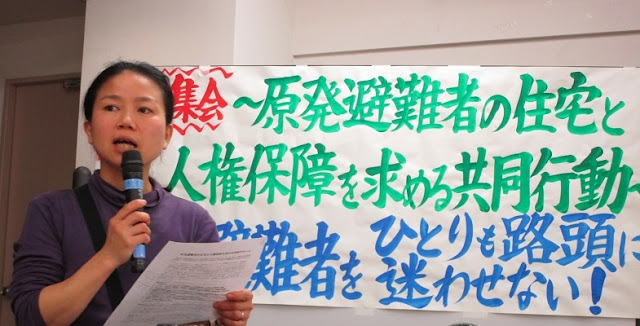 集会
～原発避難者の住宅と
人権保障を求める共同行動～
避難者をひとりも路頭に
迷わせない!